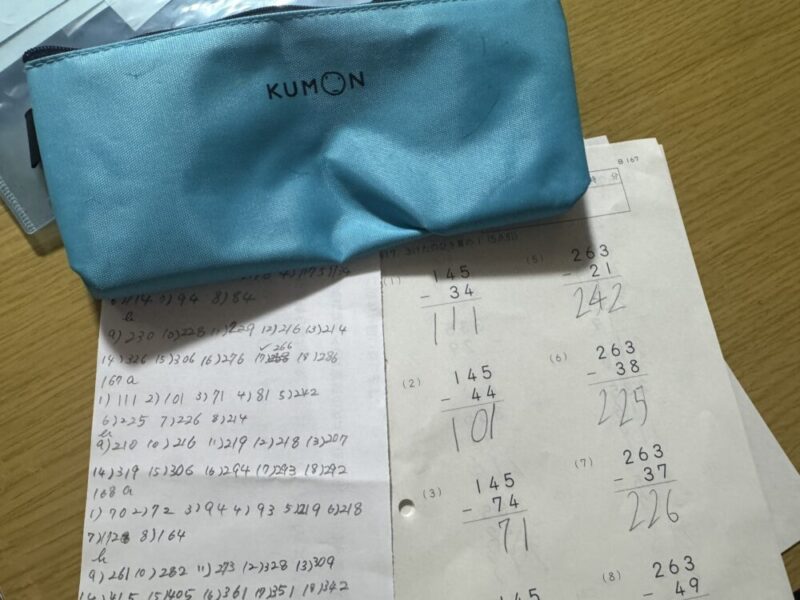 KUMON
6)114 7)94 8)84
b
9)230 10)228 11)229 12)216 13)214
266
14)326 15)306 16)276 17) 18)286
167a
1)111 2)101 3)71 4)81 5)242
6)225 7)226 8)214
b
9)210 10)216 11)219 12)218 13)207
14)319 15)306 16)294 17)293 18)292
168a
1)70 2)72 3)94 4)93 5)219 6)218
8)164
b
9)261 10)282 11)273 12)328 13)309
14)415 15)405 16)361 17)351 18)342
B 167
分
(1)
145
- 34
111
(2)
145
- 44
101
(3)
145
- 74
71
145
(5)
263
- 21
242
(6)
263
- 38
225
(7)
263
- 37
226
(8)
263
- 49